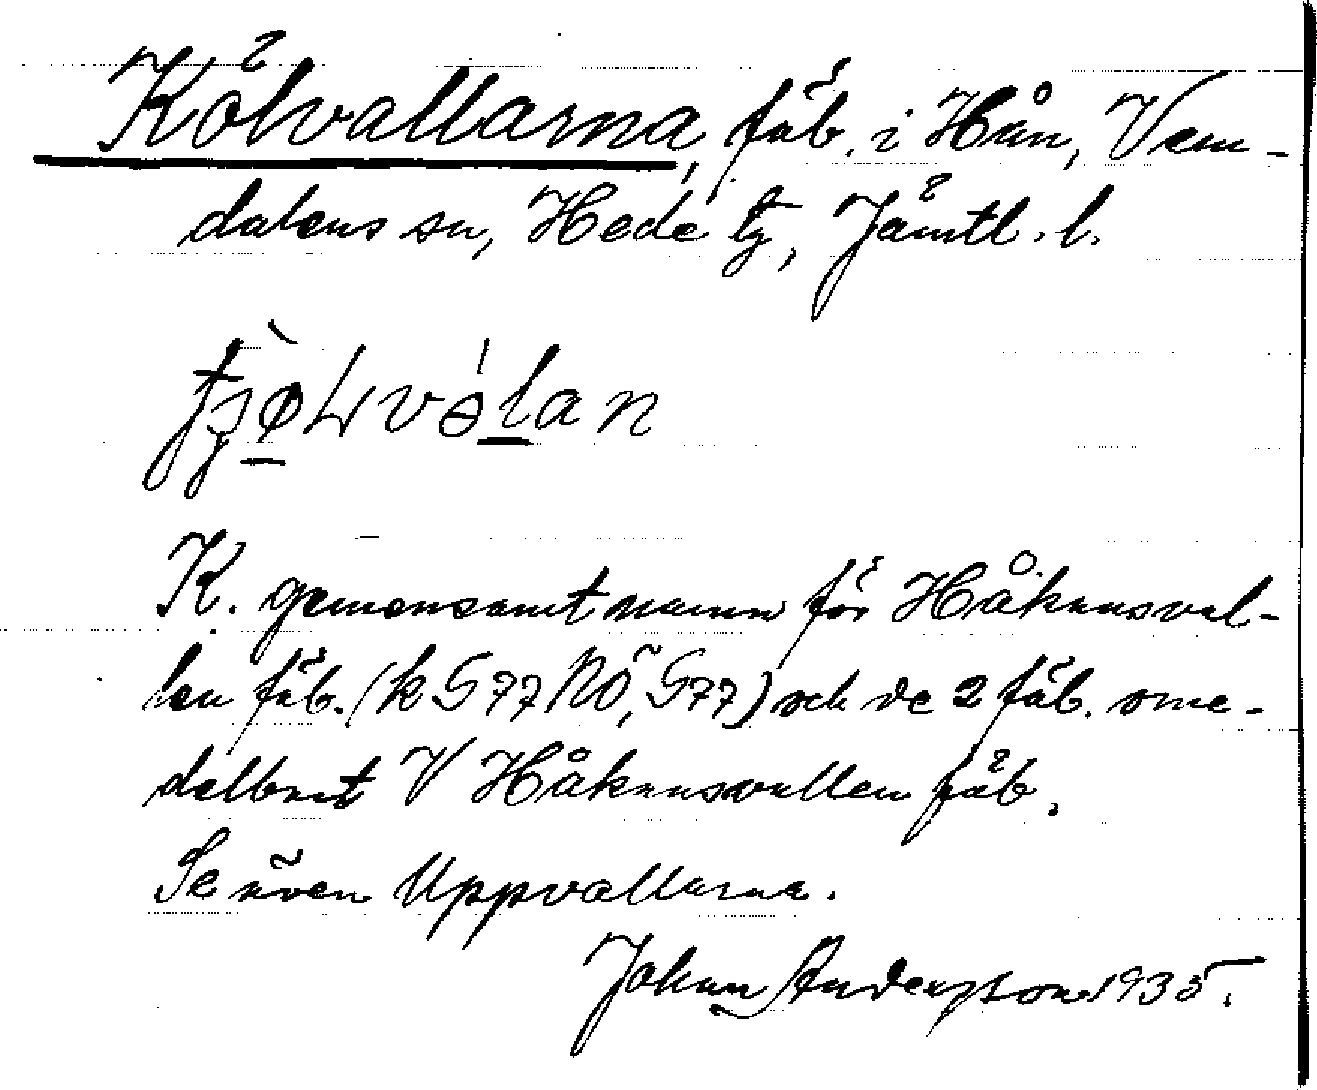 Kölvallarna, fäb. i Hån, Vem-
dalens sn, Hede tg, Jämtl. l.
K. gemensamt namn för Håkansval-
len fäb. (k G 77 NÖ, G 77) och de 2 fäb. ome-
delbart V Håkansvallen fäb.
Se även Uppvallarna.
Johan Andersson 1935.